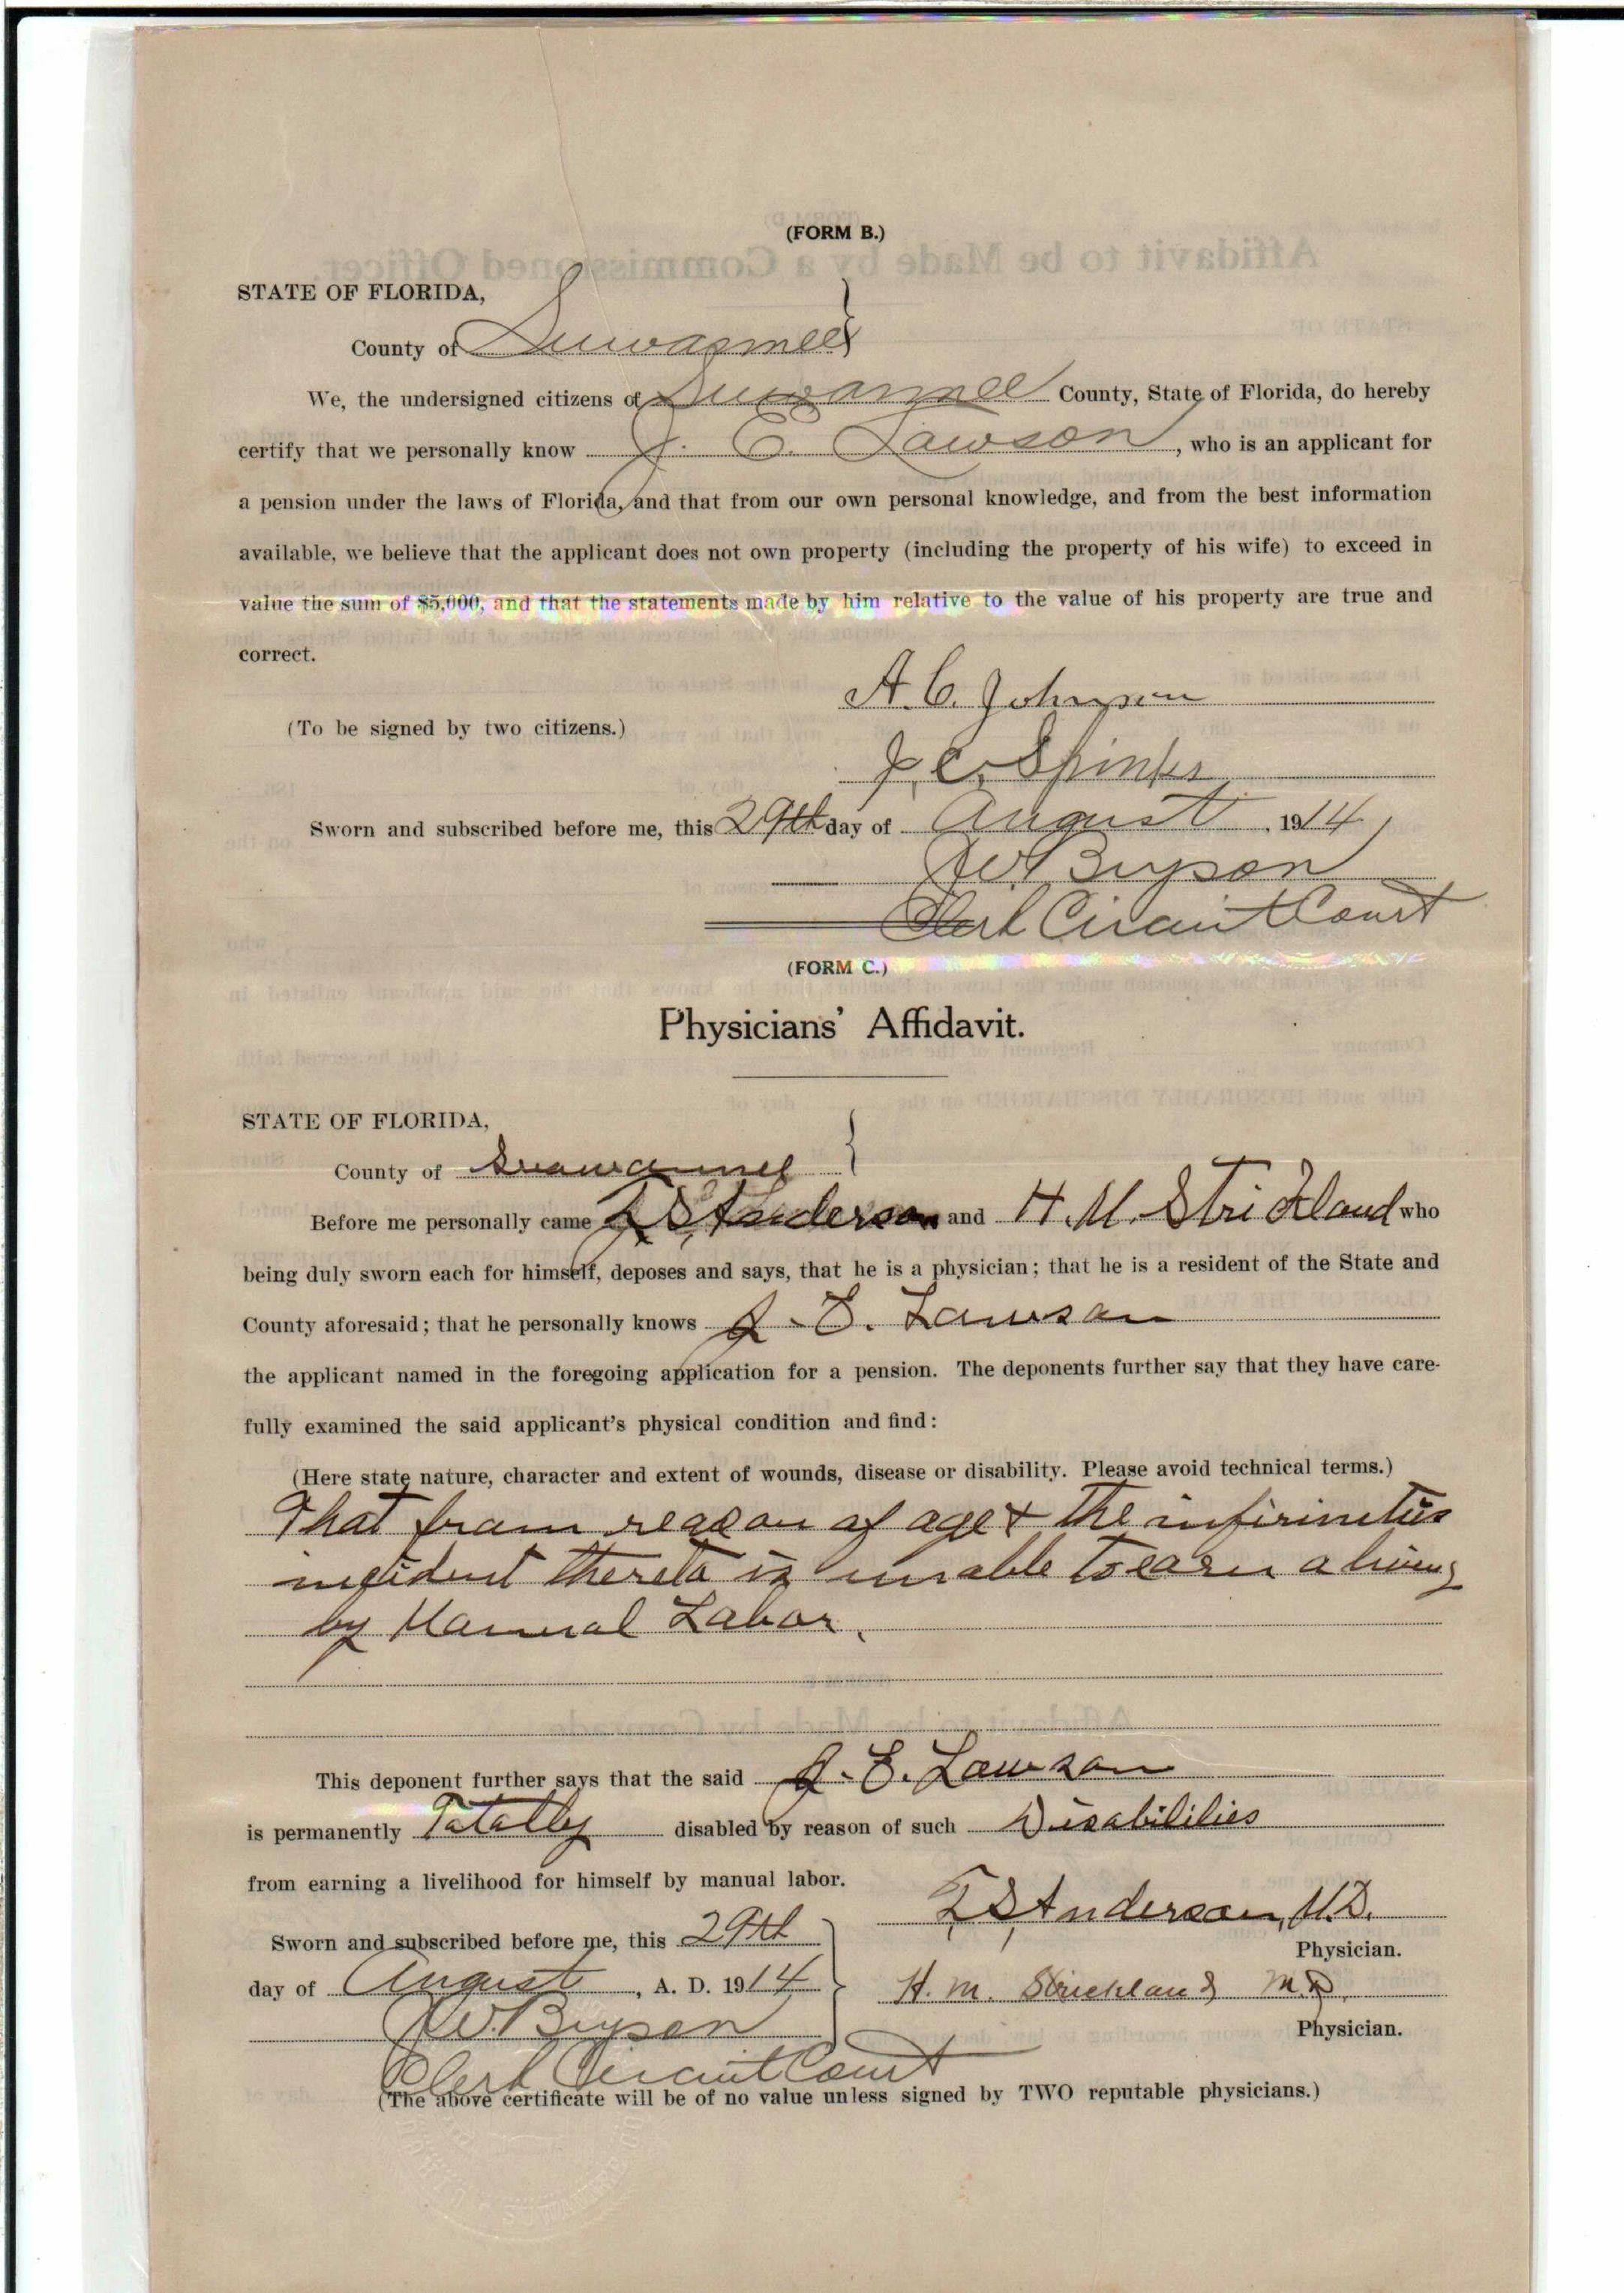 (FORM B.)
STATE OF FLORIDA,
County of Suwannee
We, the undersigned citizens of Suwannee County, State of Florida, do hereby
certify that we personally know J. E. Lawson, who is an applicant for
a pension under the laws of Florida, and that from our own personal knowledge, and from the best information
available, we believe that the applicant does not own property (including the property of his wife) to exceed in
value the sum of $5,000, and that the statements made by him relative to the value of his property are true and
correct.
A. C. Johnson
(To be signed by two citizens.)
J. C. Spinks
Sworn and subscribed before me, this 29th day of August, 1914
J W Bryson
Clerk Circuit Court
(FORM C.)
Physicians' Affidavit.
STATE OF FLORIDA,
County of Suwannee
Before me personally came T S Anderson and H. M. Strickland who
being duly sworn each for himself, deposes and says, that he is a physician; that he is a resident of the State and
County aforesaid; that he personally knows J. E. Lawson
the applicant named in the foregoing application for a pension. The deponents further say that they have care-
fully examined the said applicant's physical condition and find:
(Here state nature, character and extent of wounds, disease or disability. Please avoid technical terms.)
That from reason of age & the infirmities
incident thereto is unable to earn a living
by Manual Labor.
This deponent further says that the said J. E. Lawson
is permanently Totally disabled by reason of such Disabilities
from earning a livelihood for himself by manual labor.
T S Anderson, M.D.
Physician.
Sworn and subscribed before me, this 29th
day of August, A. D. 1914
H. M. Strickland M.D.
Physician.
J W. Bryson
Clerk Circuit Court
(The above certificate will be of no value unless signed by TWO reputable physicians.)